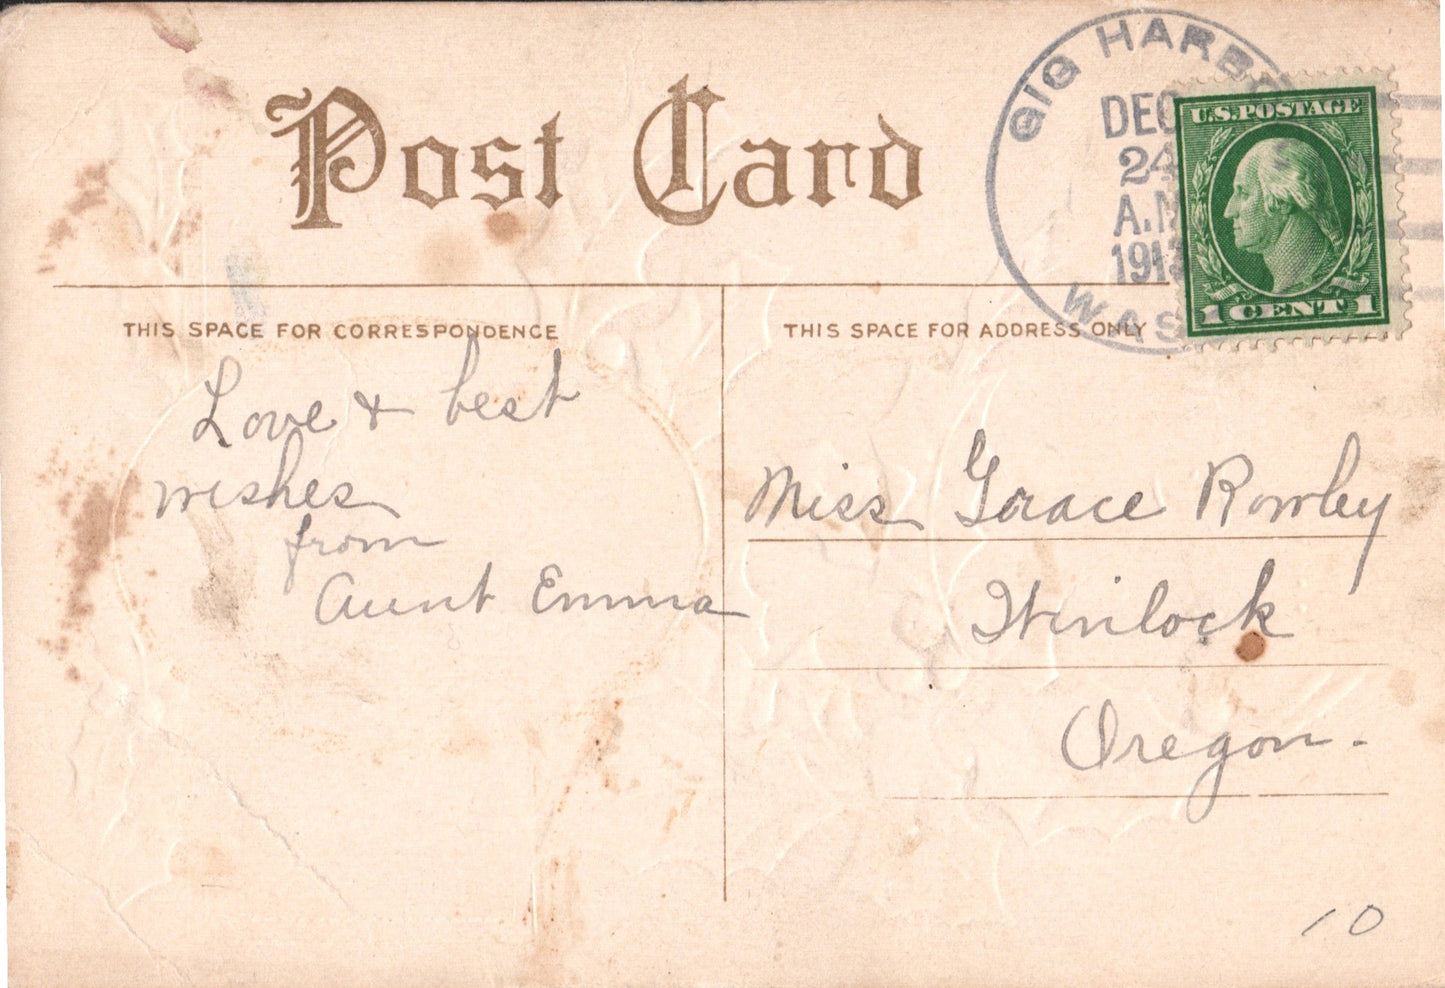 Post Card
GIG HARBO
DEC
24
A.M
1913
WAS
U.S. POSTAGE
1 CENT 1
THIS SPACE FOR CORRESPONDENCE
THIS SPACE FOR ADDRESS ONLY
Love & best
wishes
from
Aunt Emma
Miss Grace Rowley
Winlock
Oregon.
10